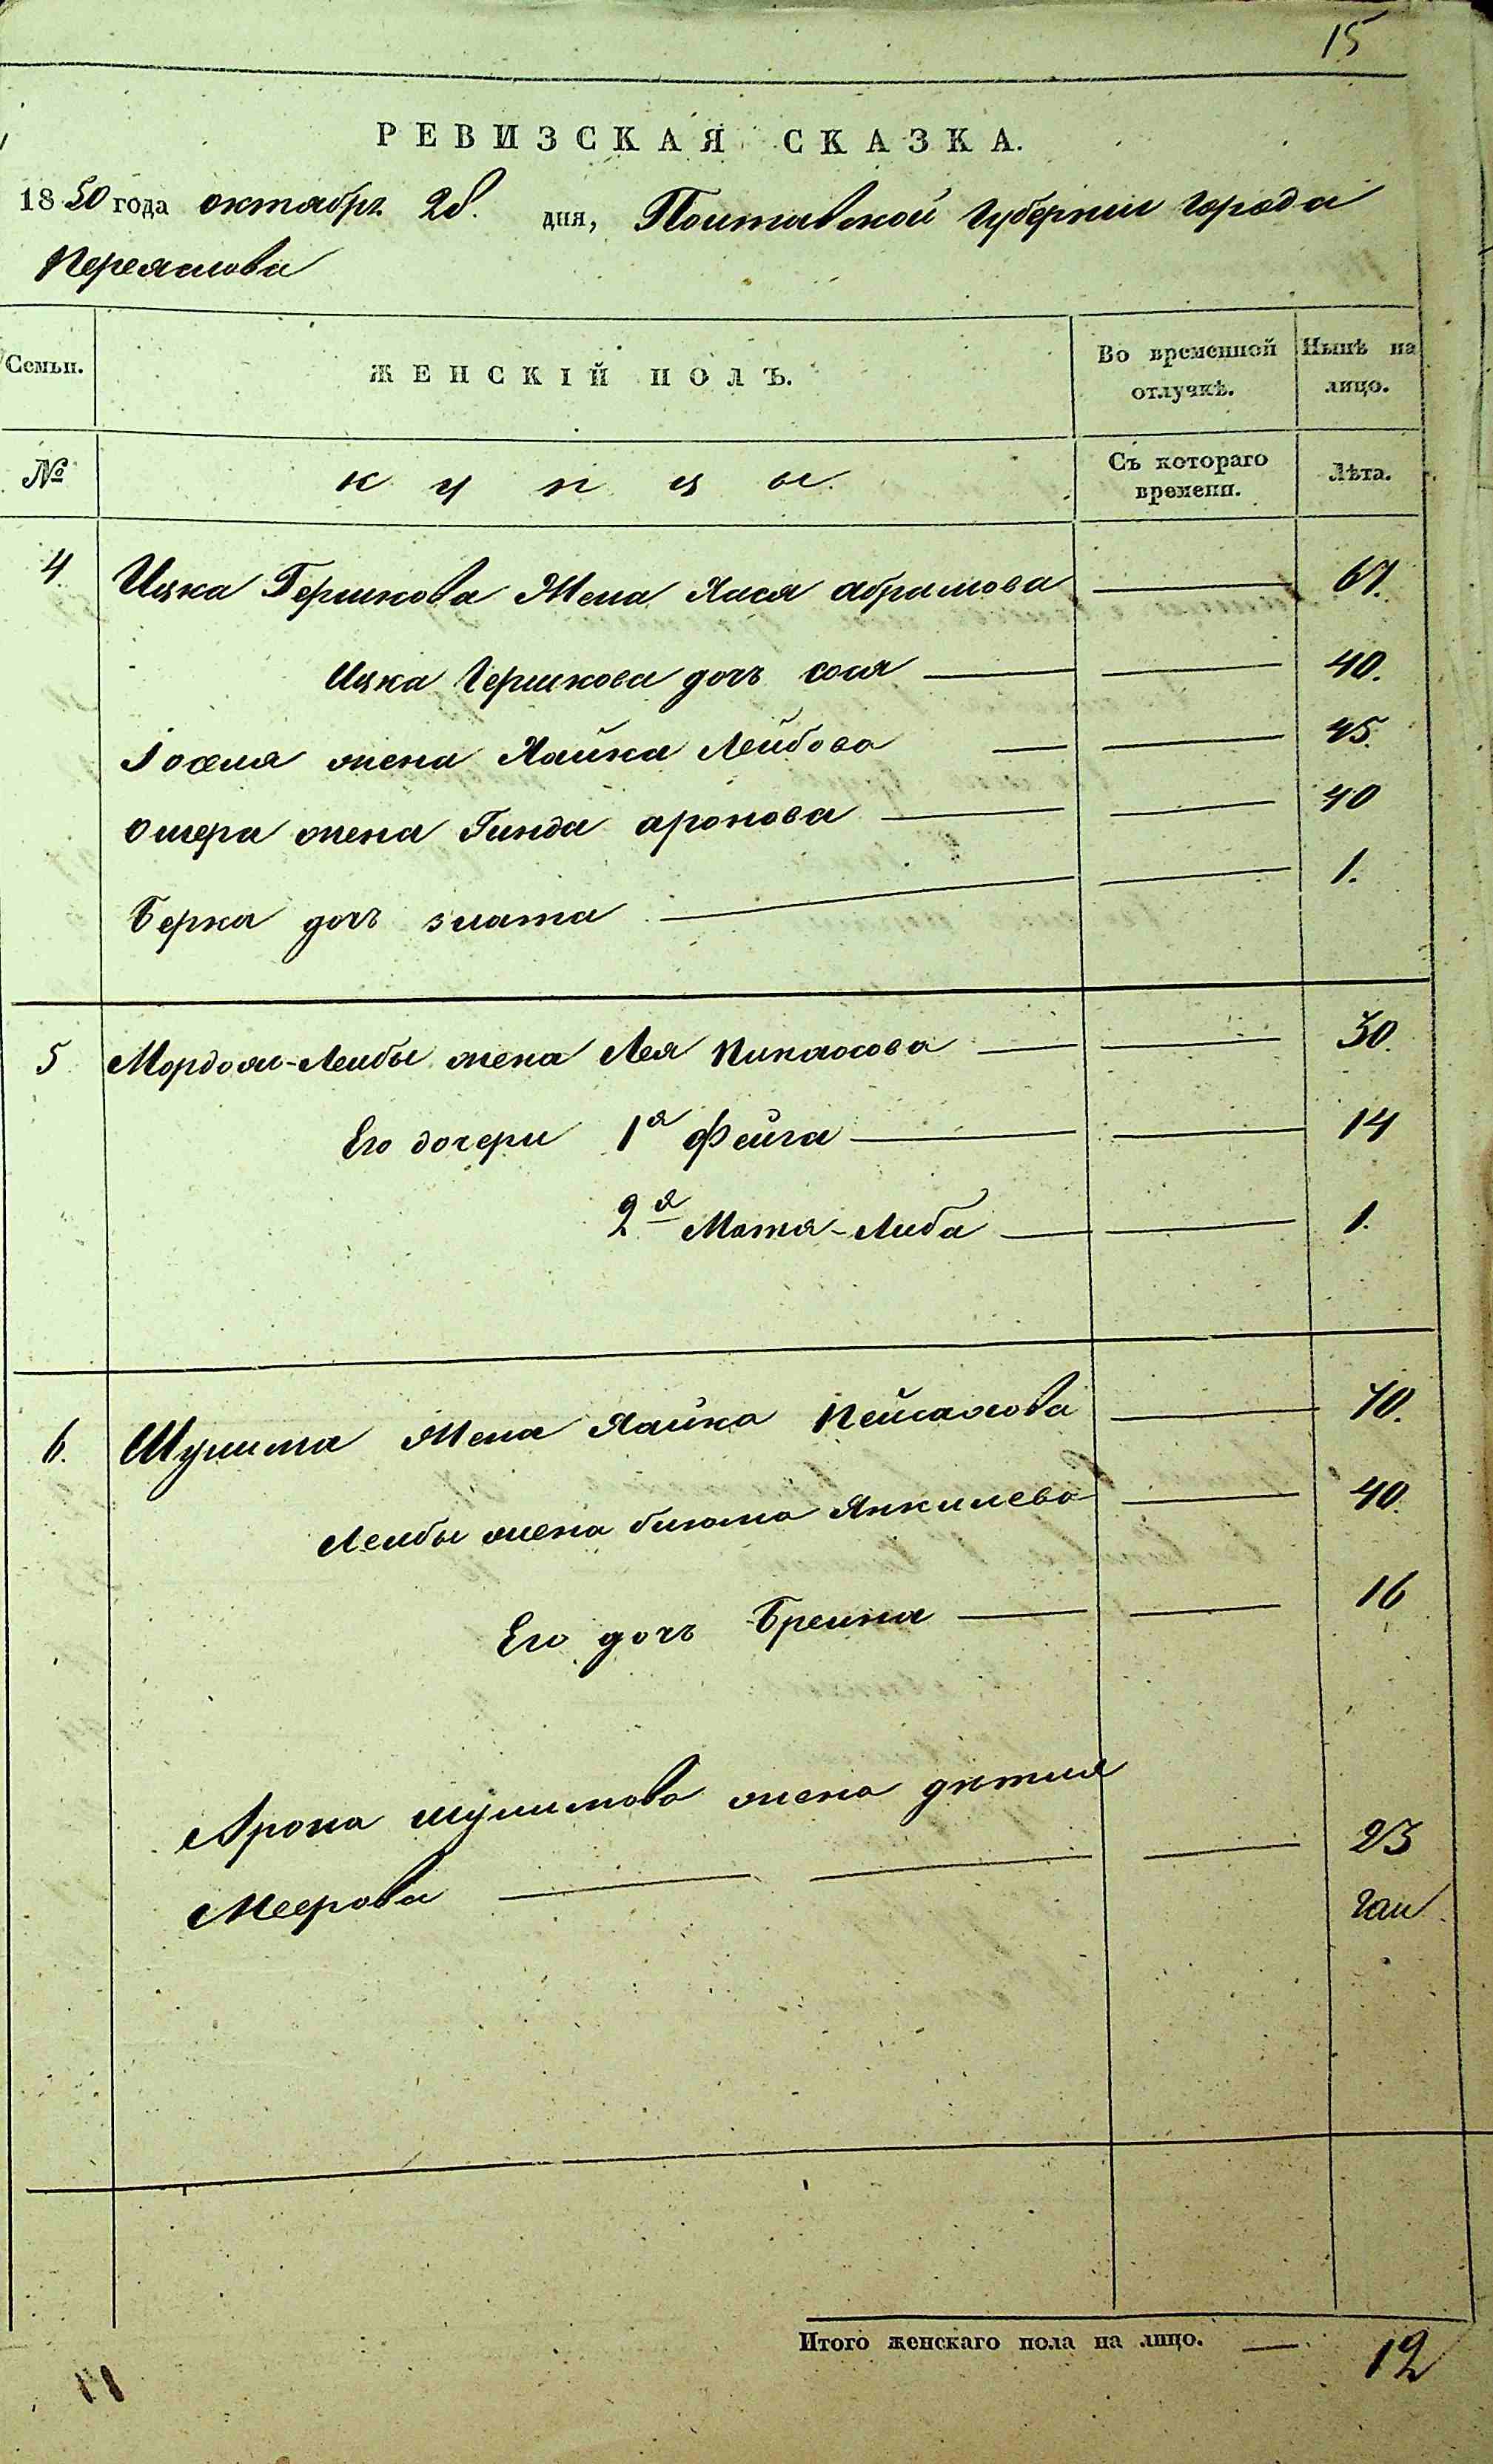 15
РЕВИЗСКАЯ СКАЗКА.
1850 года октября 28. дня, Полтавской Губернии города
Переяслова
Семьи. ЖЕНСКІЙ ПОЛЪ. Во временной отлучкѣ. Нынѣ на лицо.
№ купцы. Съ котораго времени. Лѣта.
4 Ицка Гершкова Жена Хася абрамова 67.
Ицка Гершкова дочь сося 40.
Іоселя жена Хайка Лейбова 45.
Ошера жена Гинда аронова 40
Берка дочь злата 1.
5 Мордхи-Лейбы жена Лея Пинхасова 30.
Его дочери 1я Фейга 14
2я Матя-Либа 1.
6. Шулима Жена Хайка Пейсахова 70.
Лейбы жена блюма Янкилева 40.
Его дочь Брейна 16
Арона шулимова жена
Меерова 23
12
Итого женскаго пола на лицо. 12